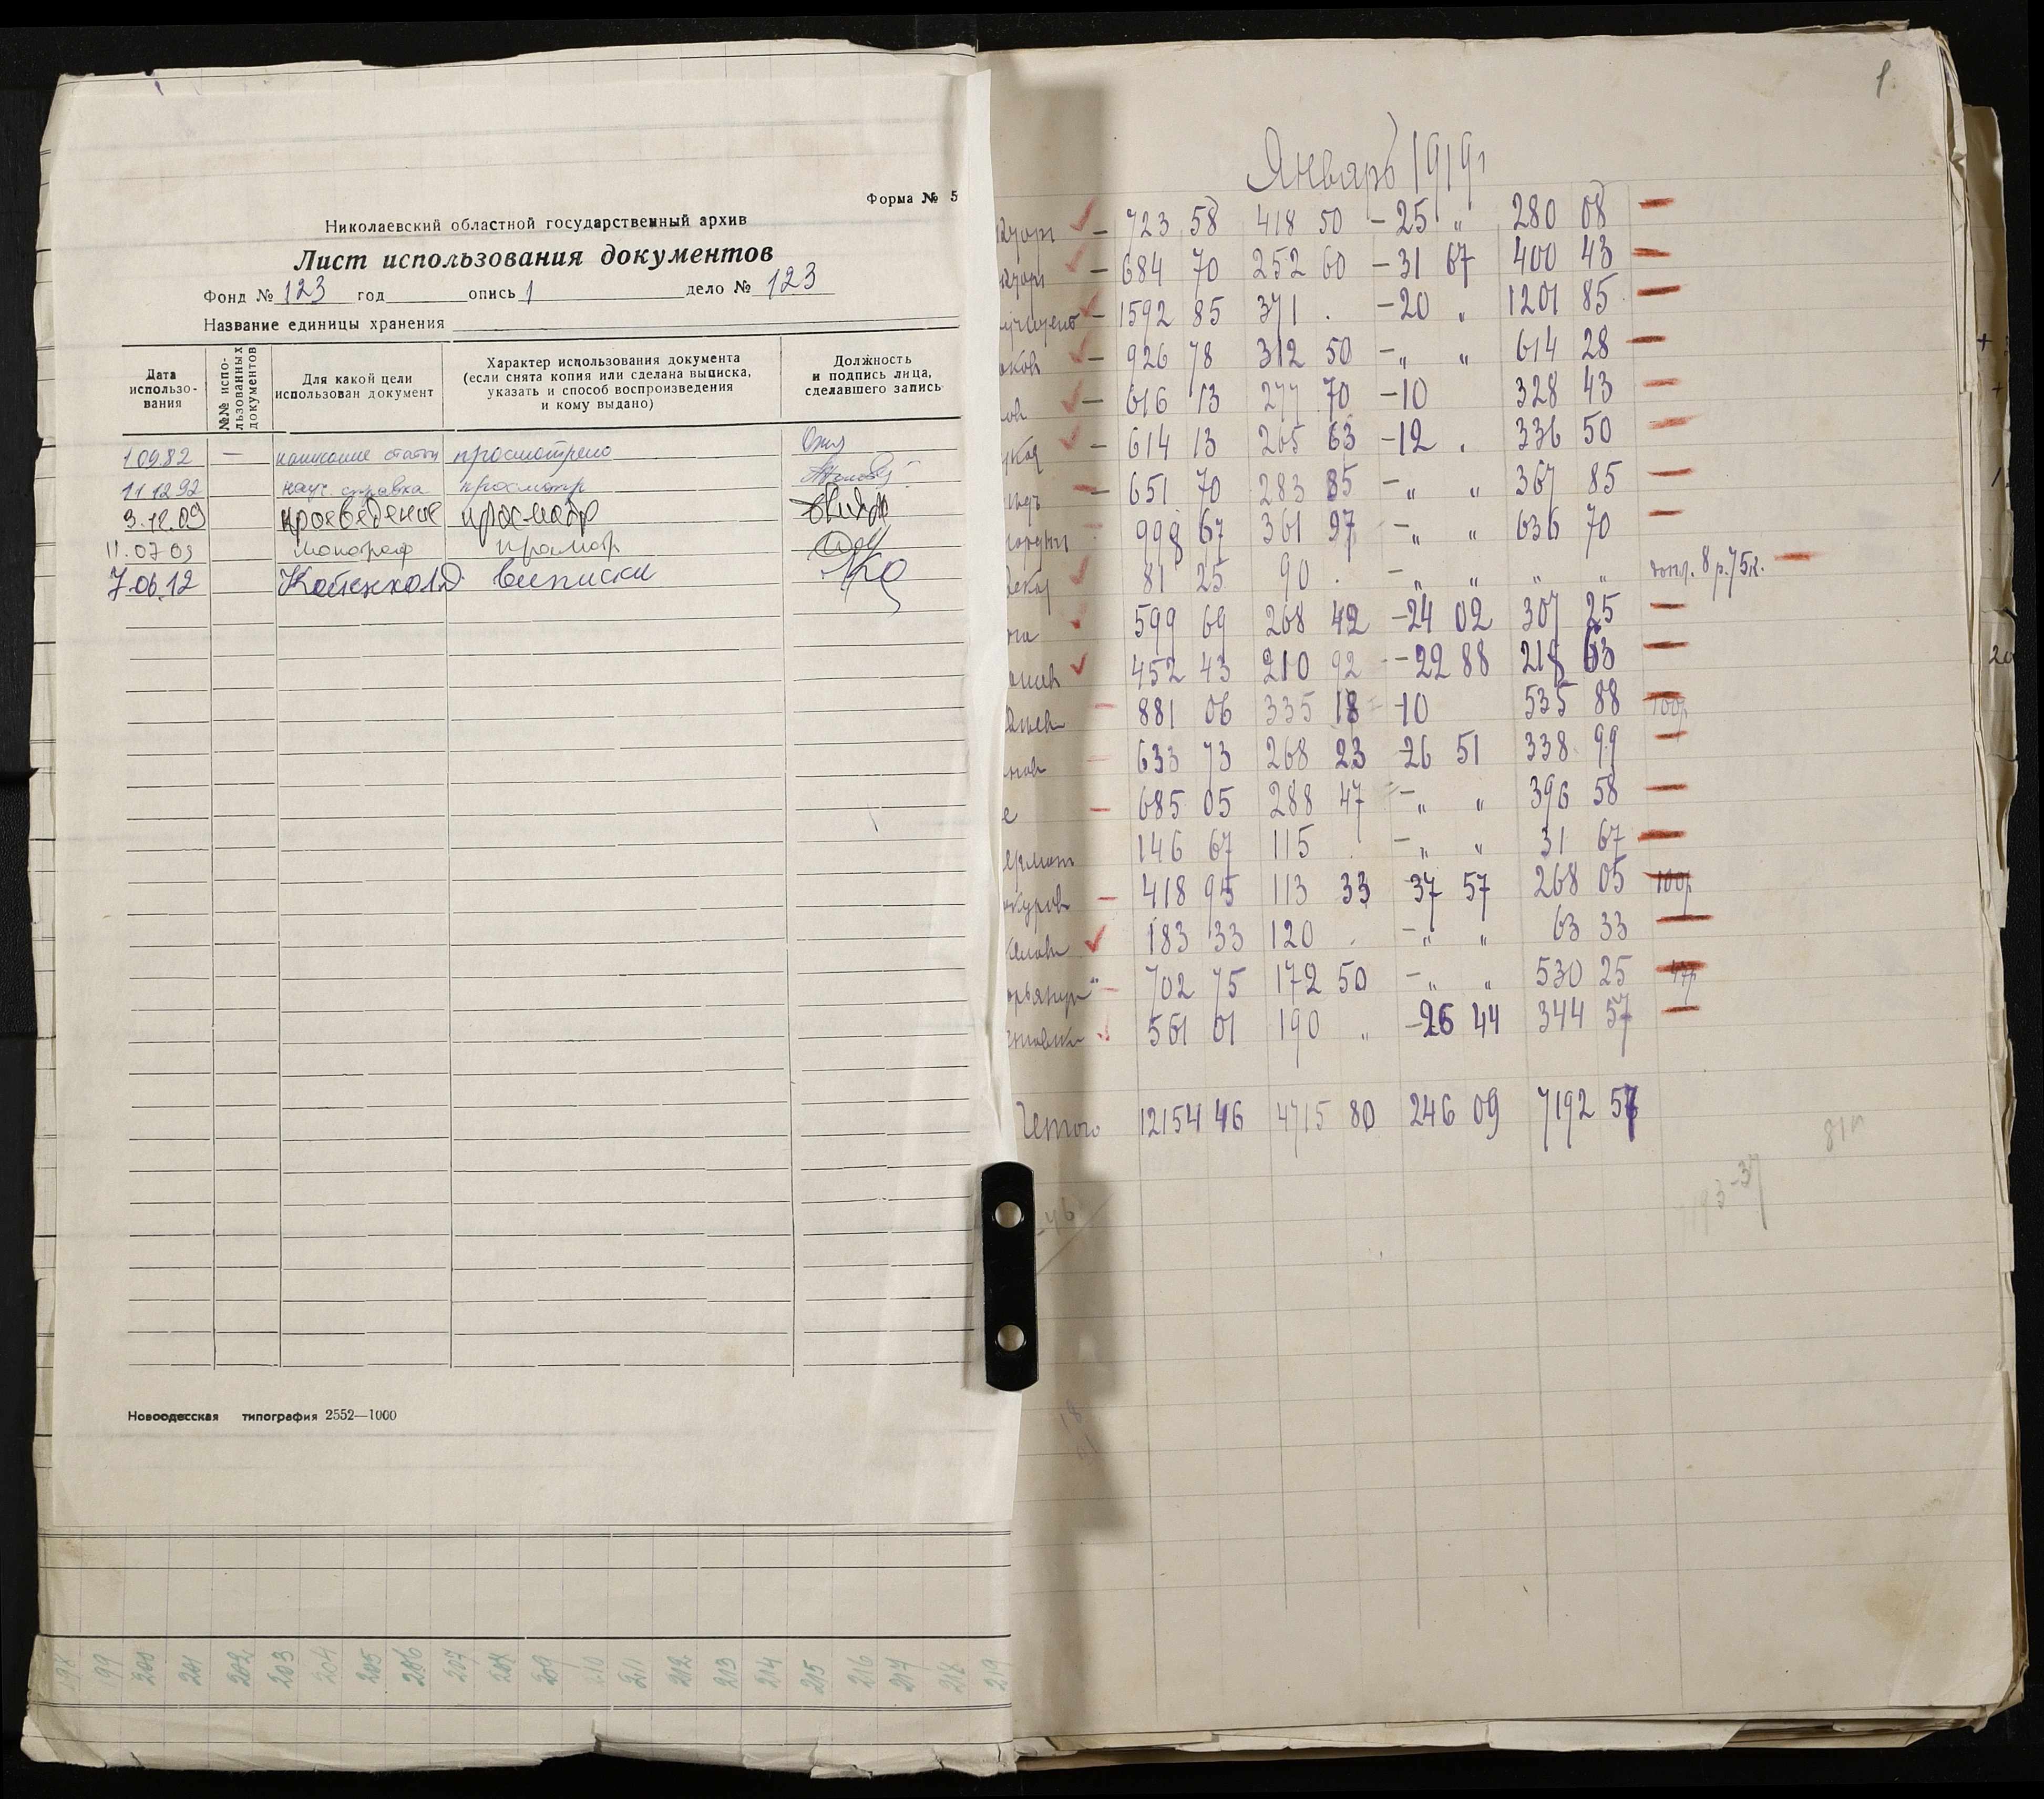 Форма № 5
Николаевский областной государственный архив
Лист использования документов
Фонд № 123 год опись 1 дело № 123
Название единицы хранения
Дата использо-вания
№№ испо-льзованных документов
Для какой цели использован документ
Характер использования документа (если снята копия или сделана выписка, указать и способ воспроизведения и кому выдано)
Должность и подпись лица, сделавшего запись
1.09.82 — написание статьи просмотрено
11.12.92 науч. справка просмотр
3.12.09 краеведение просмотр
11.07.09 монограф просмотр
7.06.12 виписки
Новоодесская типография 2552—1000
198 199 200 201 202 203 204 205 206 207 208 209 210 211 212 213 214 215 216 217 218 219
1
Январь 1919г
— 723 58 418 50 - 25 „ 280 08 —
— 684 70 252 60 - 31 67 400 43 —
— 1592 85 371 . - 20 „ 1201 85 —
— 926 78 312 50 - „ „ 614 28 —
— 616 13 277 70 - 10 328 43 —
— 614 13 265 63 - 12 . 336 50 —
— 651 70 283 85 - „ „ 367 85 —
998 67 361 97 - „ „ 636 70 —
81 25 90 . - „ „ „ „ 8 р. 75к. —
599 69 268 42 - 24 02 307 25 —
452 43 210 92 - 22 88 218 63 —
— 881 06 335 18 - 10 535 88 100р
— 633 73 268 23 - 26 51 338 99 —
— 685 05 288 47 - „ „ 396 58 —
146 67 115 . - „ „ 31 67 —
— 418 95 113 33 - 37 57 268 05 100р
183 33 120 . - „ „ 63 33 —
— 702 75 172 50 - „ „ 530 25
561 01 190 „ - 26 44 344 57 —
Итого 12154 46 4715 80 246 09 7192 57